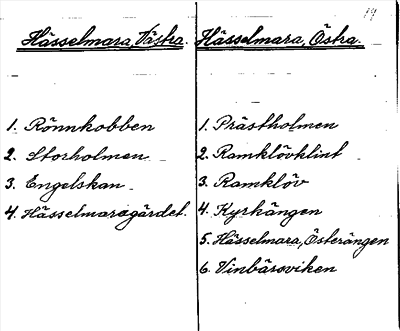 19
Hässelmara, Västra.
1. Rönnkobben
2. Storholmen
3. Engelskan
4. Hässelmaragärdet.
Hässelmara, Östra.
1. Prästholmen
2. Ramklövklint
3. Ramklöv
4. Kyrkängen
5. Hässelmara, Österängen
6. Vinbärsviken